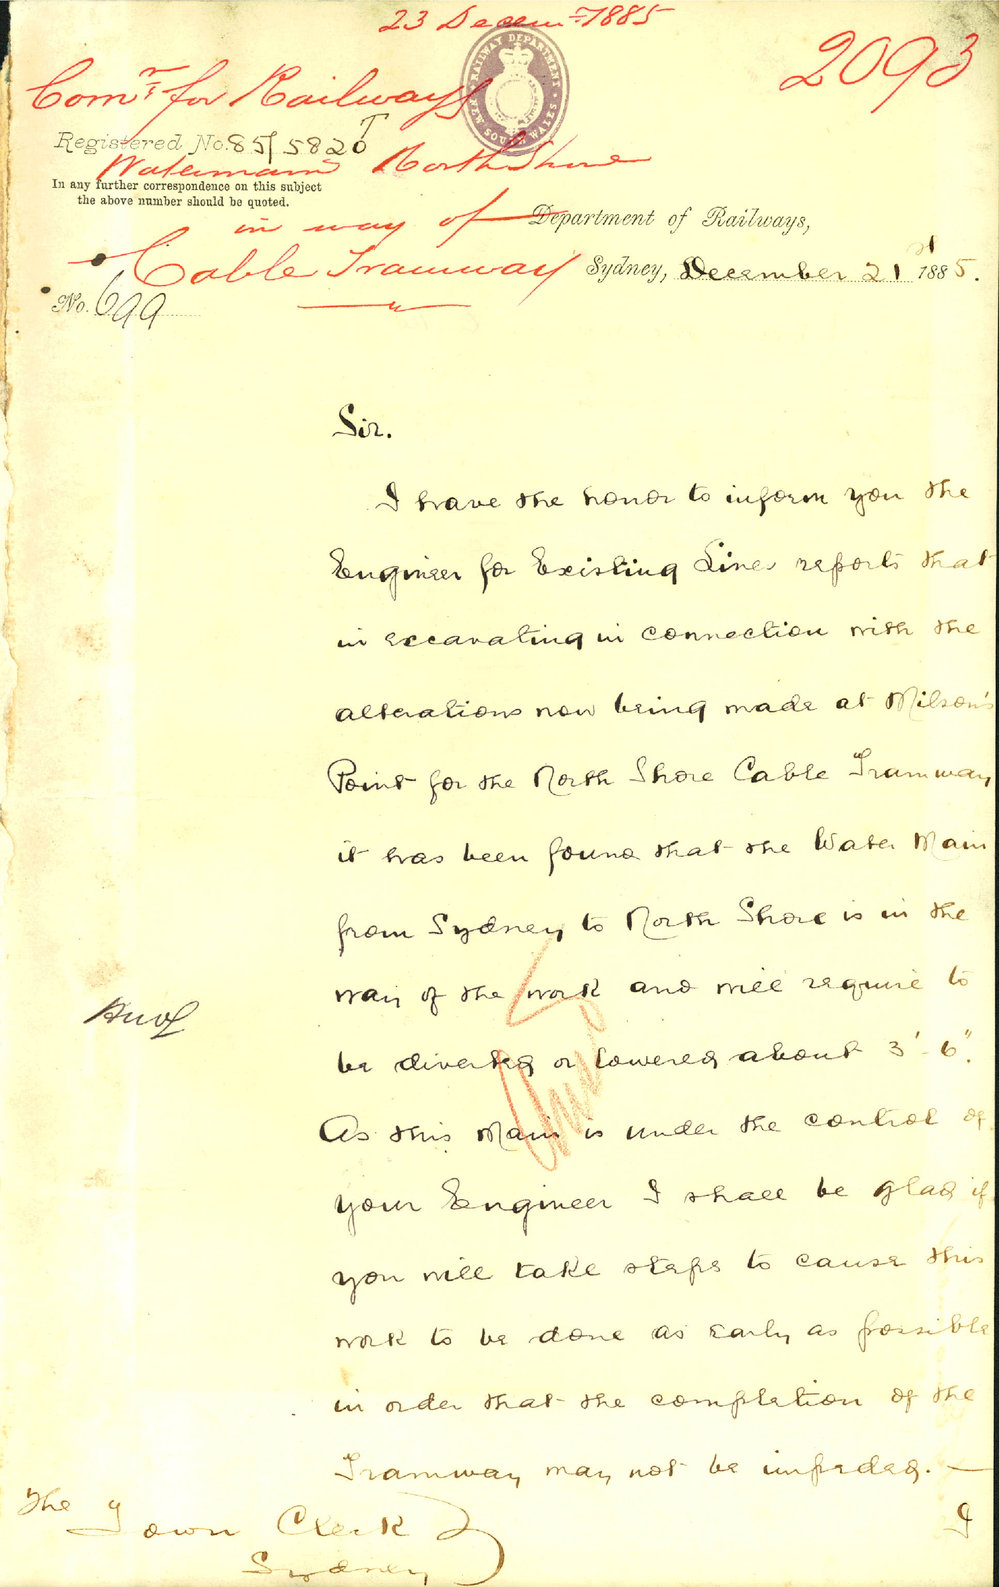 23 Decem- 1885
2093
Comnr for Railways
RAILWAY DEPARTMENT
NEW SOUTH WALES
Registered No. 85/5820
T
Watermain North Shore
In any further correspondence on this subject
the above number should be quoted.
in way of
Department of Railways,
Cable Tramway
Sydney, December 21st 1885.
No. 699
Sir.
I have the honor to inform you the
Engineer for Existing Lines reports that
in excavating in connection with the
alterations now being made at Milson's
Point for the North Shore Cable Tramway
it has been found that the Water Main
from Sydney to North Shore is in the
way of the work and will require to
be diverted or lowered about 3' 6".
As this Main is under the control of
your Engineer I shall be glad if
you will take steps to cause this
work to be done as early as possible
in order that the completion of the
Tramway may not be impeded. —
I
The
Town Clerk
Sydney